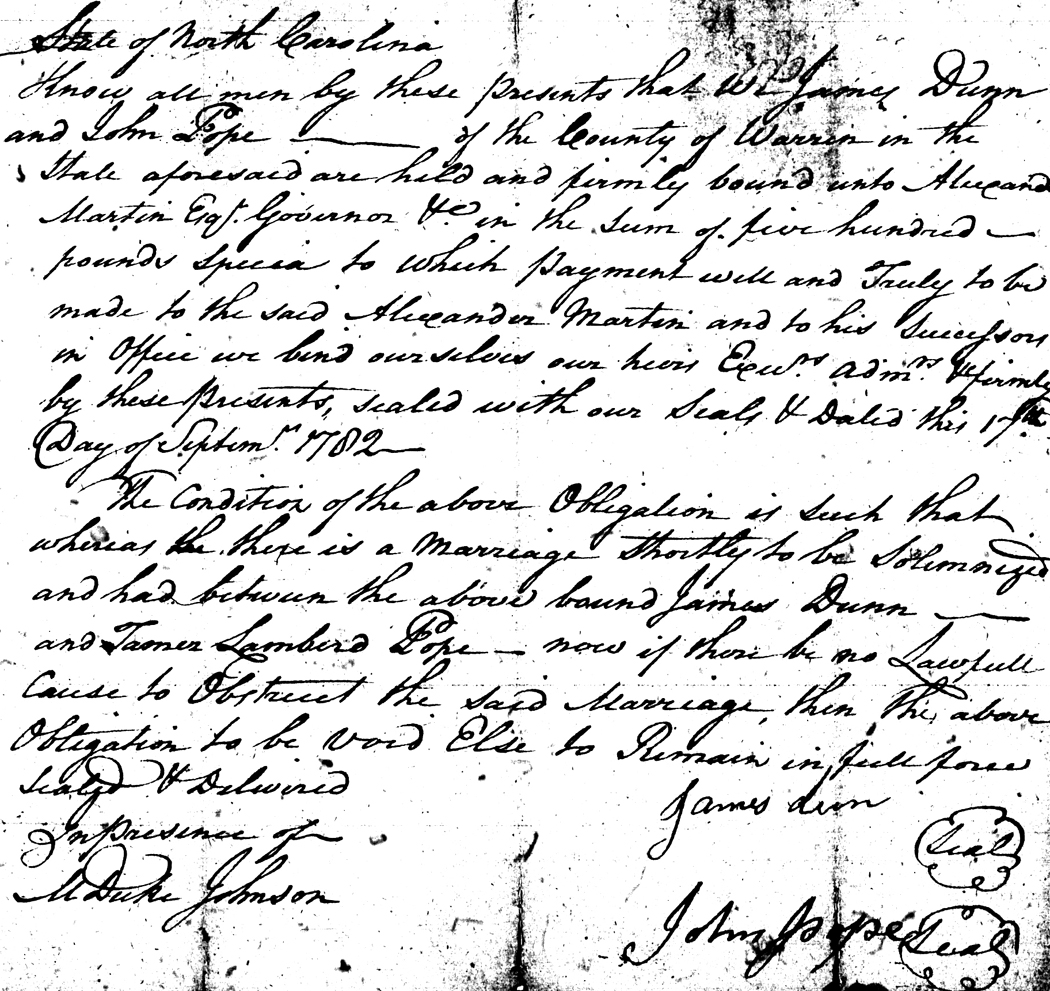 State of North Carolina
Know all men by these presents that We James Dunn
and John Pope ——— of the County of Warren in the
State aforesaid are held and firmly bound unto Alexand
Martin Esqr. Governor &c in the sum of five hundred —
pounds specia to which payment well and Truly to be
made to the said Alexander Martin and to his Successors
in Office we bind ourselves our heirs Exurs. Admrs. &c firmly
by these presents, sealed with our Seals & Dated this 17th
Day of Septemr. 1782 —
The Condition of the above Obligation is such that
whereas the there is a Marriage Shortly to be Solemnized
and had between the above bound James Dunn ——
and Tamer Lamberd Pope — now if there be no Lawfull
Cause to Obstruct the said Marriage, then the above
Obligation to be void Else to Remain in full force
Seal'd & Delivered
In presence of
M Duke Johnson
James dunn
Seal
John pope
Seal